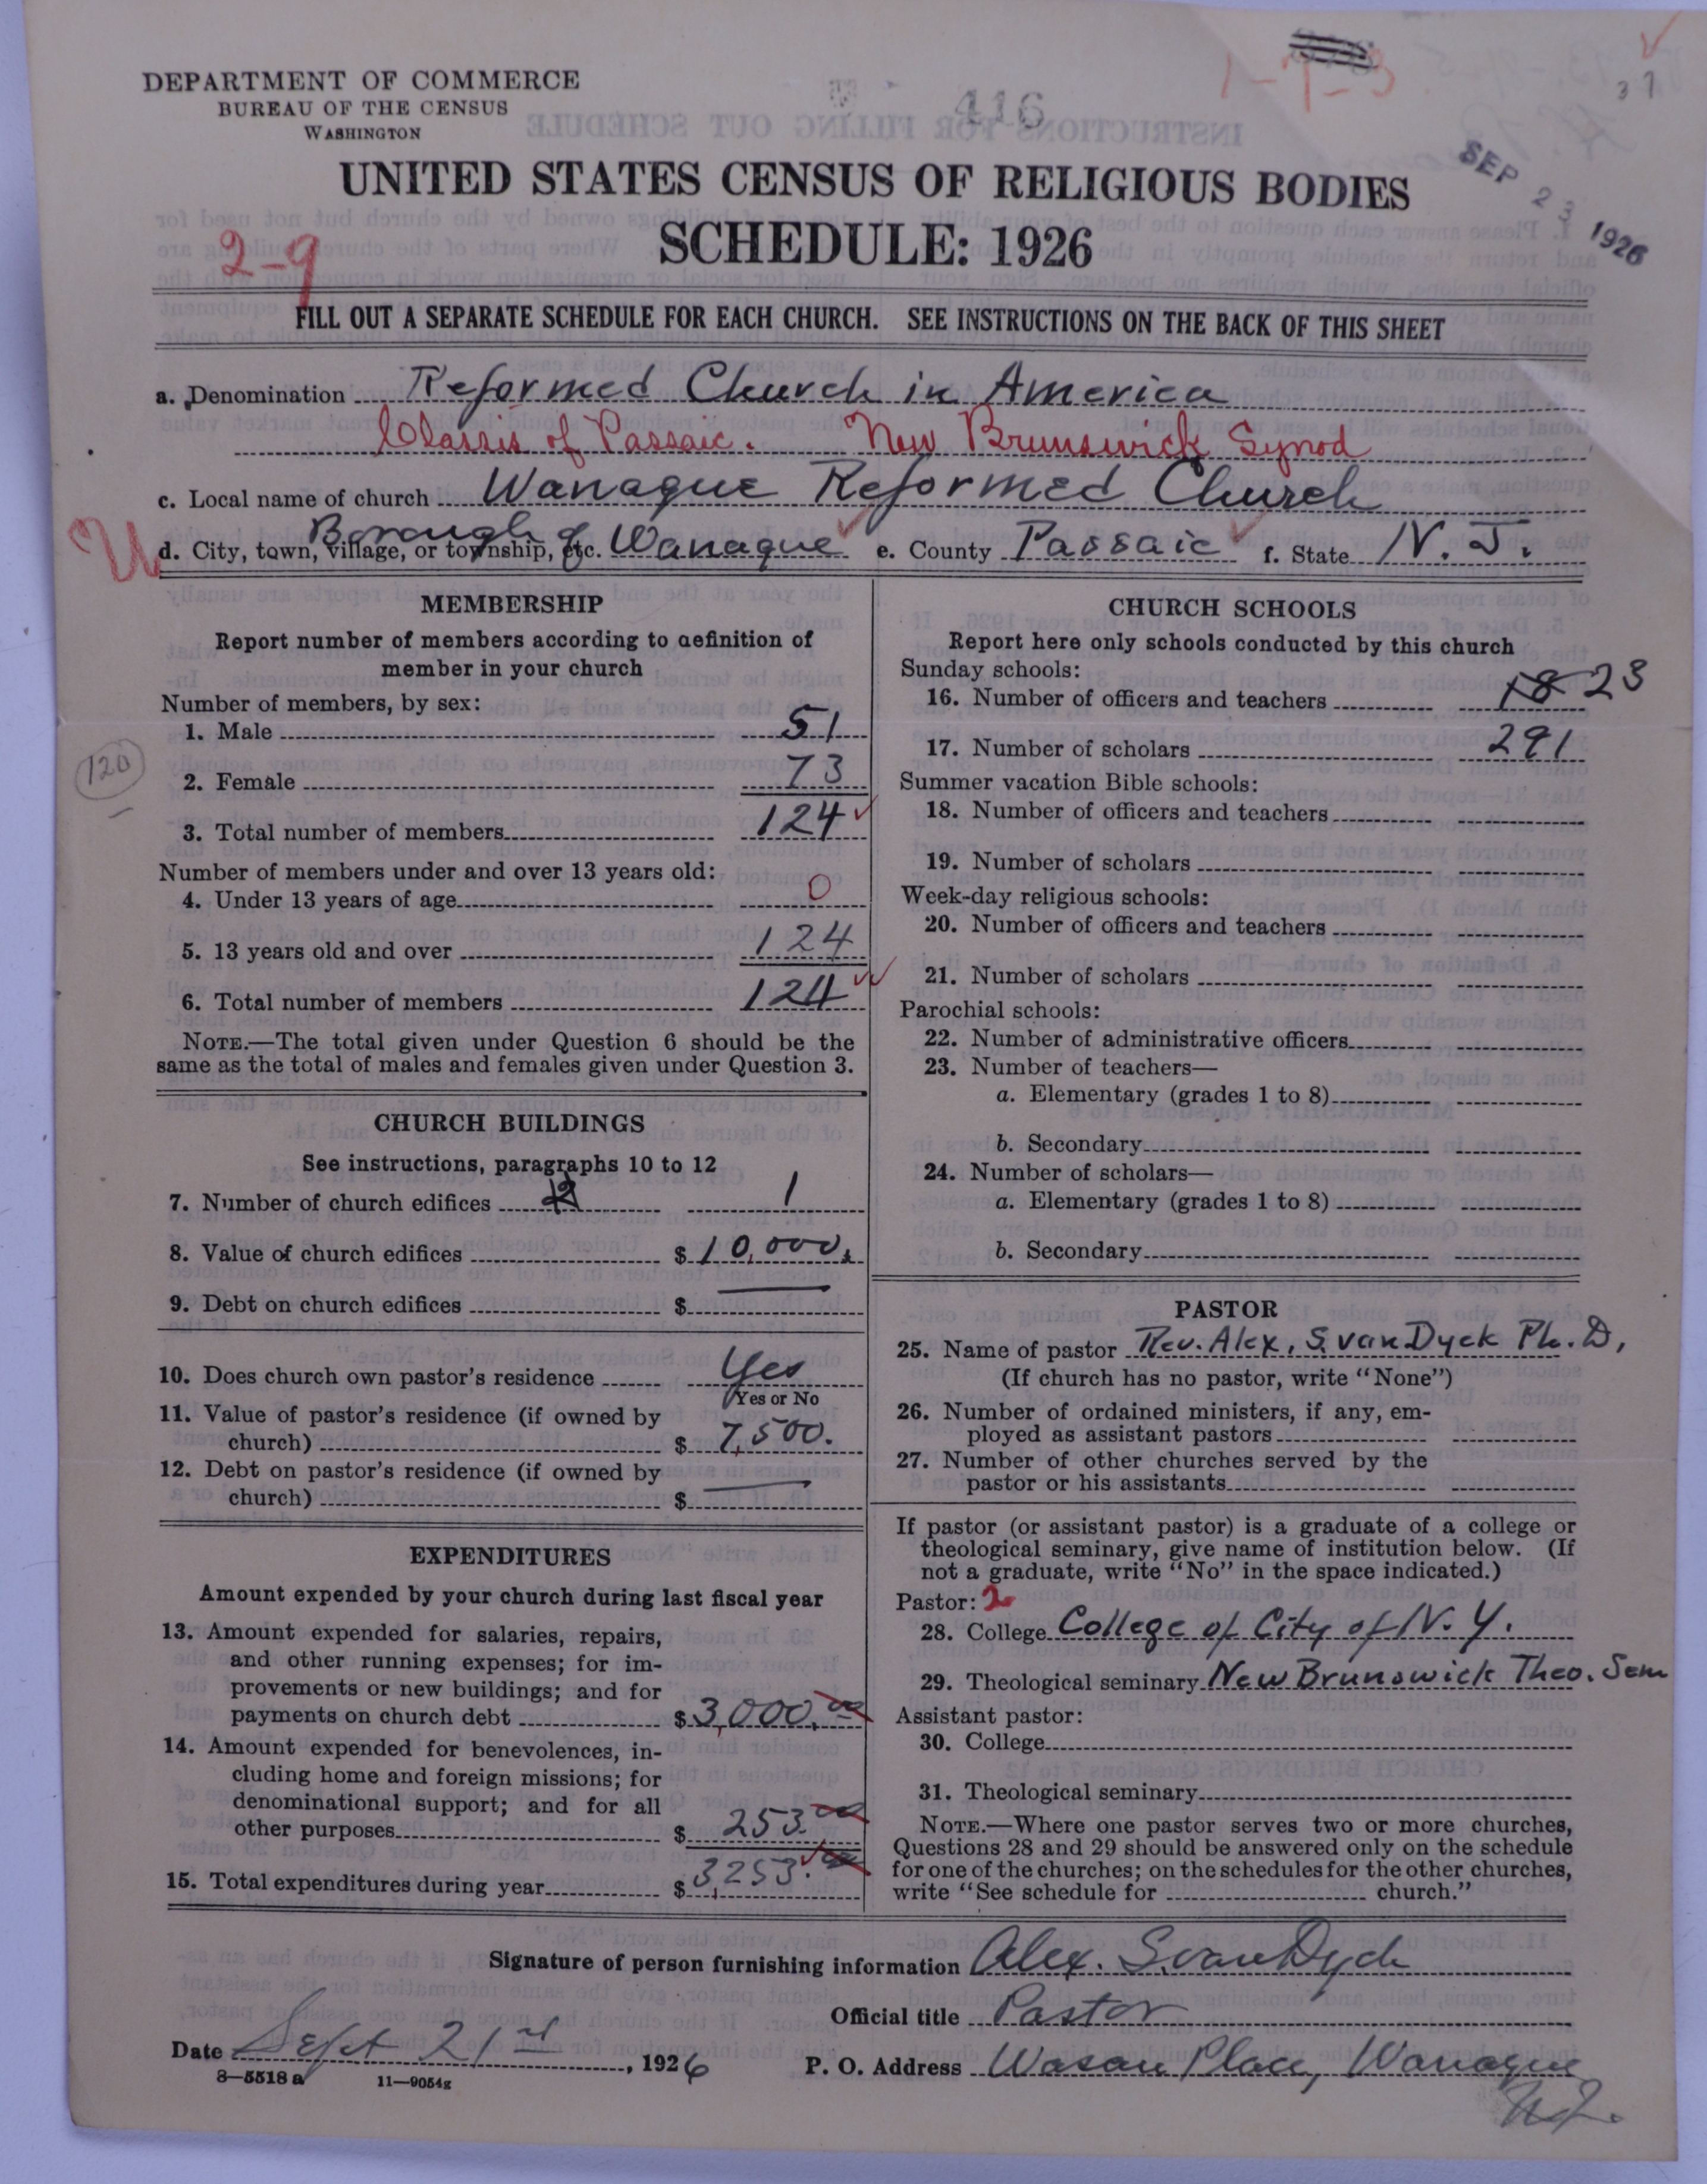 DEPARTMENT OF COMMERCE
BUREAU OF THE CENSUS
WASHINGTON
416
1-7-3
37
SEP 23 1926
UNITED STATES CENSUS OF RELIGIOUS BODIES
SCHEDULE: 1926
2-9
FILL OUT A SEPARATE SCHEDULE FOR EACH CHURCH. SEE INSTRUCTIONS ON THE BACK OF THIS SHEET
a. Denomination Reformed Church in America
Classis of Passaic. New Brunswick Synod
c. Local name of church Wanaque Reformed Church
U d. City, town, village, or township, etc. Borough of Wanaque e. County Passaic f. State N. J.
MEMBERSHIP
Report number of members according to definition of
member in your church
Number of members, by sex:
1. Male 51
120
2. Female 73
3. Total number of members 124
Number of members under and over 13 years old:
4. Under 13 years of age 0
5. 13 years old and over 124
6. Total number of members 124
NOTE.—The total given under Question 6 should be the
same as the total of males and females given under Question 3.
CHURCH BUILDINGS
See instructions, paragraphs 10 to 12
7. Number of church edifices 1
8. Value of church edifices $10,000.
9. Debt on church edifices $ —
10. Does church own pastor's residence Yes
Yes or No
11. Value of pastor's residence (if owned by
church) $ 7,500.
12. Debt on pastor's residence (if owned by
church) $ —
EXPENDITURES
Amount expended by your church during last fiscal year
13. Amount expended for salaries, repairs,
and other running expenses; for im-
provements or new buildings; and for
payments on church debt $ 3,000.00
14. Amount expended for benevolences, in-
cluding home and foreign missions; for
denominational support; and for all
other purposes $ 253.00
15. Total expenditures during year $ 3,253.00
CHURCH SCHOOLS
Report here only schools conducted by this church
Sunday schools:
16. Number of officers and teachers 18 23
17. Number of scholars 291
Summer vacation Bible schools:
18. Number of officers and teachers
19. Number of scholars
Week-day religious schools:
20. Number of officers and teachers
21. Number of scholars
Parochial schools:
22. Number of administrative officers
23. Number of teachers—
a. Elementary (grades 1 to 8)
b. Secondary
24. Number of scholars—
a. Elementary (grades 1 to 8)
b. Secondary
PASTOR
25. Name of pastor Rev. Alex. S. van Dyck Ph. D.
(If church has no pastor, write "None")
26. Number of ordained ministers, if any, em-
ployed as assistant pastors
27. Number of other churches served by the
pastor or his assistants
If pastor (or assistant pastor) is a graduate of a college or
theological seminary, give name of institution below. (If
not a graduate, write "No" in the space indicated.)
Pastor: 2
28. College College of City of N. Y.
29. Theological seminary New Brunswick Theo. Sem
Assistant pastor:
30. College
31. Theological seminary
NOTE.—Where one pastor serves two or more churches,
Questions 28 and 29 should be answered only on the schedule
for one of the churches; on the schedules for the other churches,
write "See schedule for church."
Signature of person furnishing information Alex. S. van Dyck
Official title Pastor
Date Sept 21st, 1926 P. O. Address Place, Wanaque
N.J.
8—5518 a 11—9054g